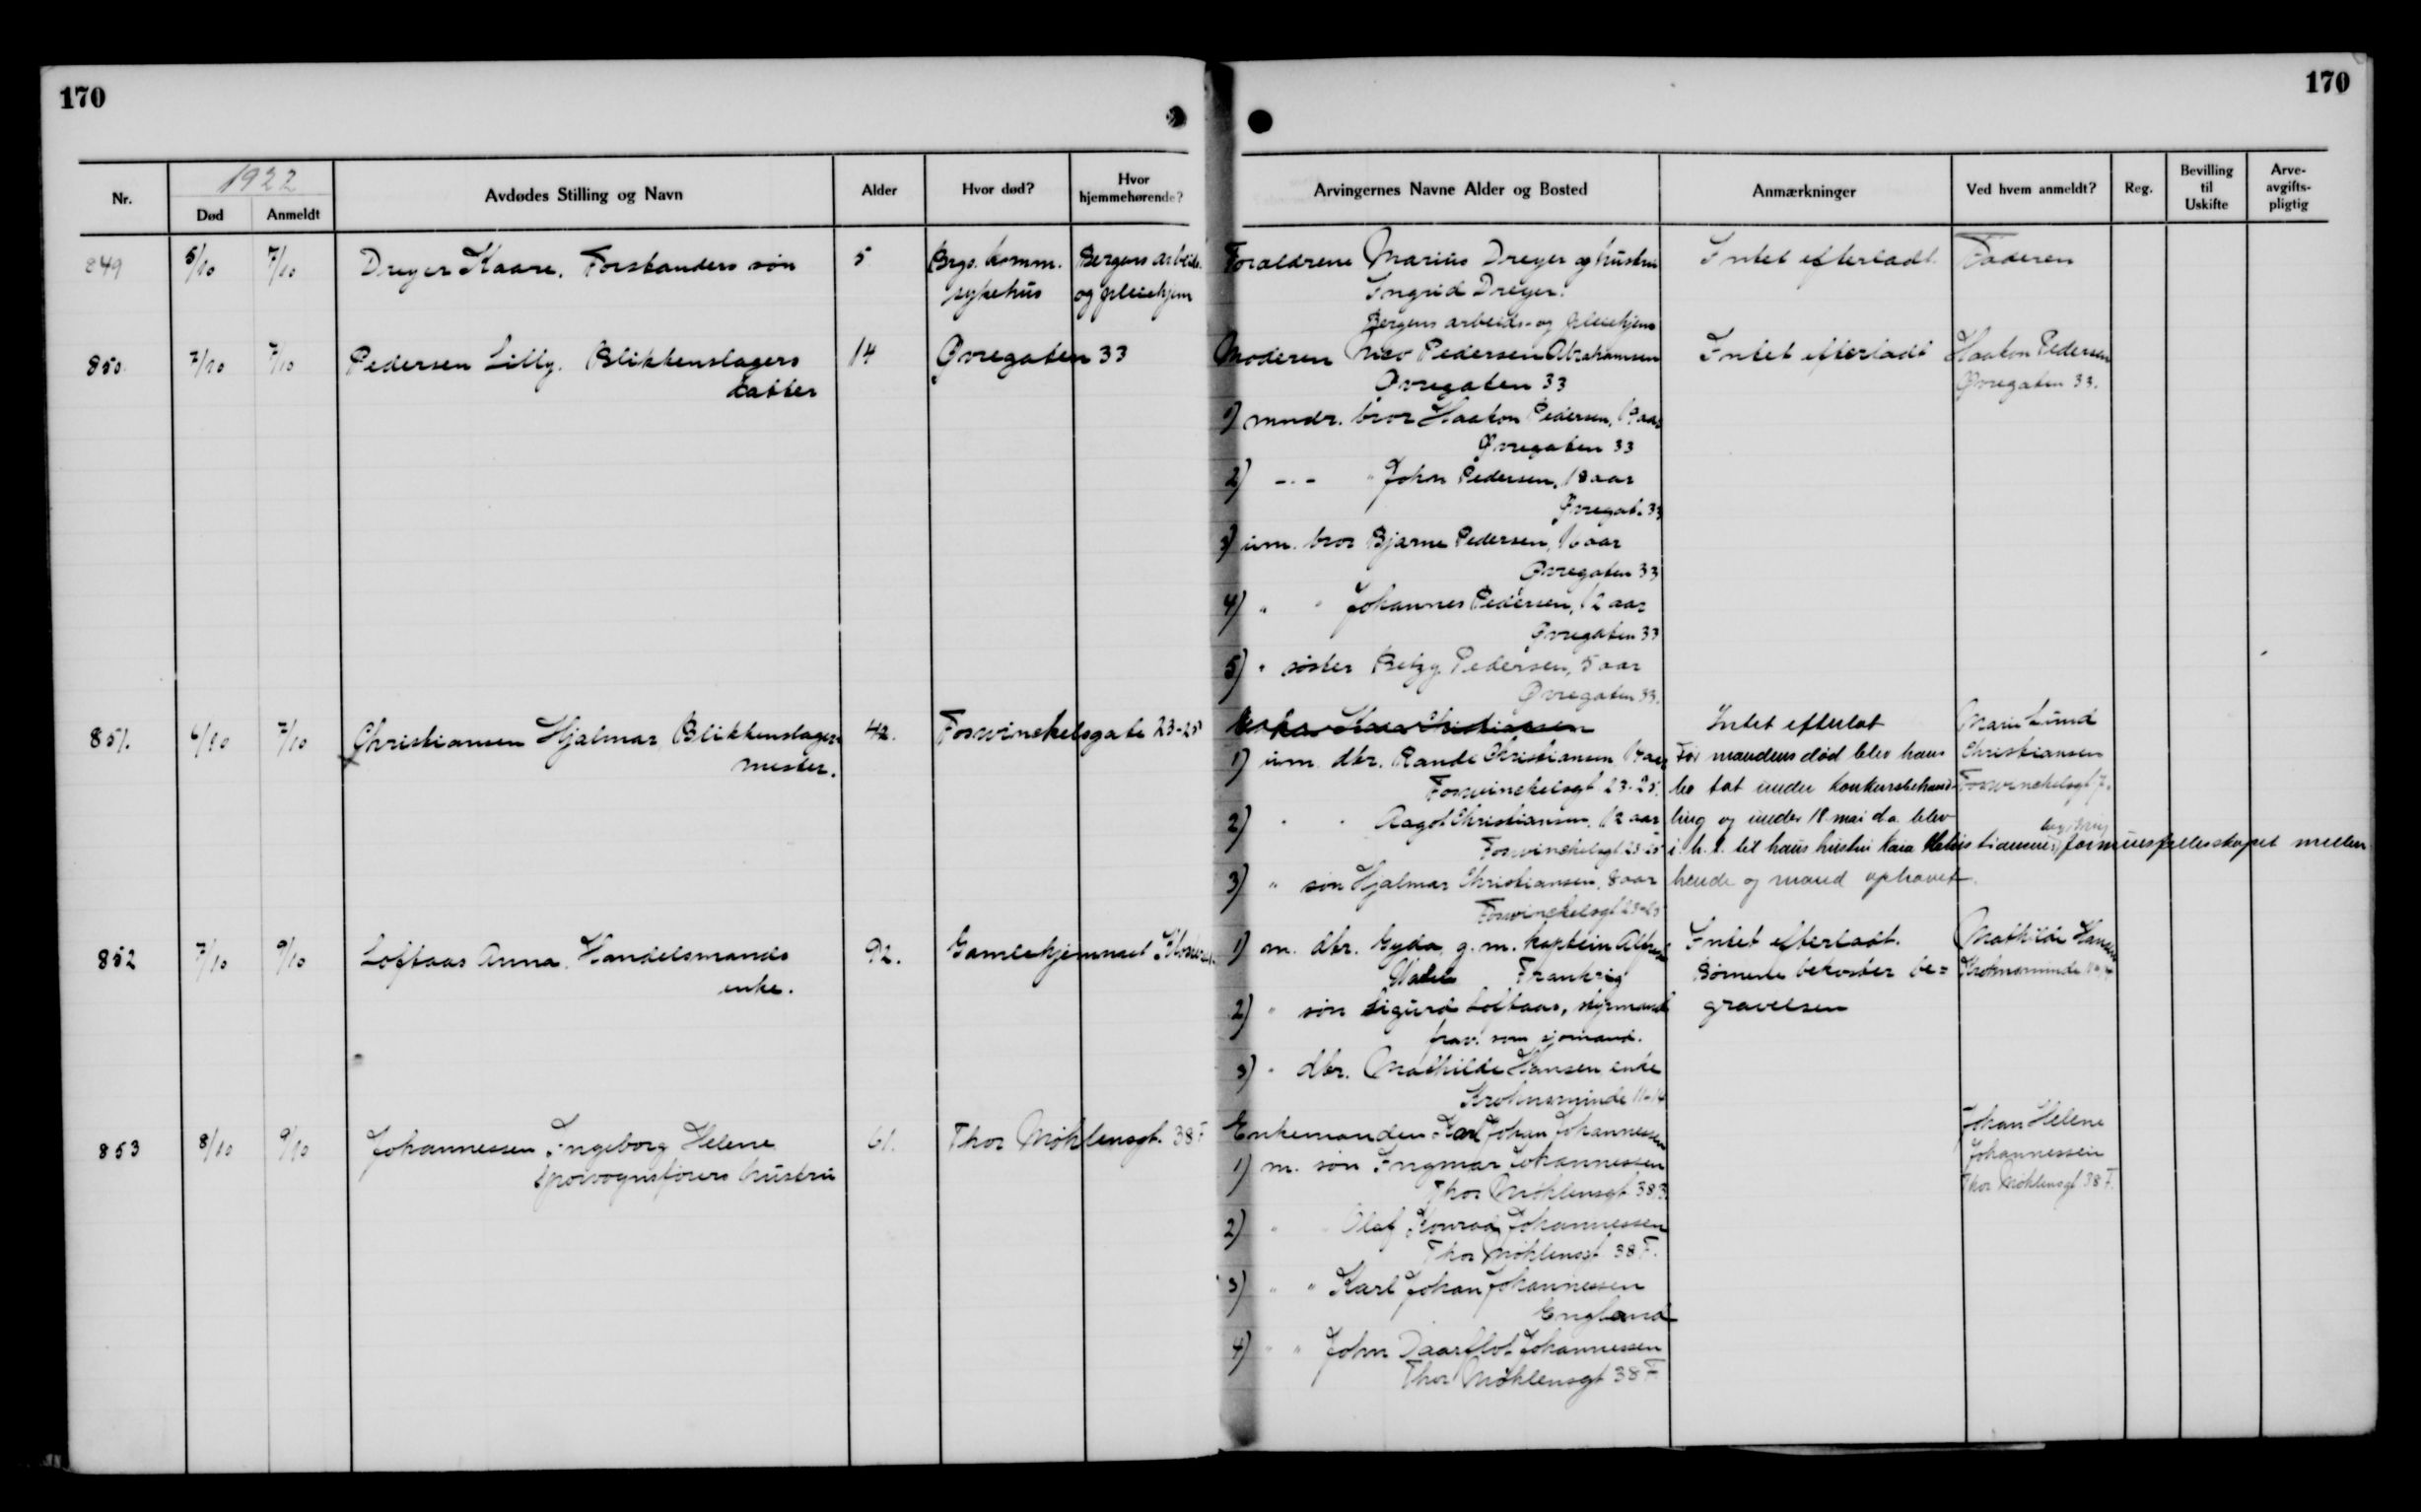 170
170
1922
Nr.
Død
Anmeldt
Avdødes Stilling og Navn
Alder
Hvor død?
Hvor hjemmehørende?
Arvingernes Navne Alder og Bosted
Anmærkninger
Ved hvem anmeldt?
Reg.
Bevilling til Uskifte
Arve-avgifts-pligtig
849 5/10 7/10 Dreyer Kaare. Forstanders søn 5 Brgs. komm. Bergens arbeids-
sykehus og pleiehjem
Foraldrene Marius Dreyer og hustru
Ingrid Dreyer.
Bergens arbeids- og pleiehjem
Intet efterladt.
Faderen
850 7/10 7/10 Pedersen Lilly. Blikkenslagers
datter
14 Øvregaten 33
Moderen Pedersen Abrahamsen
Øvregaten 33
1) mndr. bror Haakon Pedersen, 19 aar
Øvregaten 33
2) -"- " John Pedersen, 18 aar
Øvregat. 33
3) um. bror Bjarne Pedersen, 16 aar
Øvregaten 33
4) " " Johannes Pedersen, 12 aar
Øvregaten 33
5) " søster Betzy Pedersen, 5 aar
Øvregaten 33.
Intet efterladt
Haakon Pedersen
Øvregaten 33.
851. 6/10 7/10 Christiansen Hjalmar Blikkenslager-
mester.
42. Fosswinckelsgate 23-25
Kaia Christiansen
1) um. dtr. Rande Christiansen 14 aar
Fosswinckelsgt 23-25.
2) " " Aagot Christiansen, 12 aar
Fosswinckelsgt 23-25
3) " søn Hjalmar Christiansen, 8 aar
Fosswinckelsgt 23-25
Intet efterlat
Før mandens død blev hans
bo tat under konkursbehand-
ling og under 18 mai d.a. blev
i h. t. hans hustru Kaia Christiansens begjæring formuesfællesskapet mellem
hende og mand ophævet.
Marie Lund
Christiansen
Fosswinckelsgt 7.
852 7/10 9/10 Loftaas Anna. Handelsmands
enke.
92. Gamlehjemmet
1) m. dtr. Gyda, g. m. kaptein Alfred
Frankrig
2) " søn Sigurd Loftaas, styrmand
frav. som sjømand.
3) " dtr. Mathilde Hansen enke
Krohnsminde 11-14
Intet efterladt.
Børnene bekoster be=
gravelsen
Mathilde Hansen
Krohnsminde
853 8/10 9/10 Johannessen Ingeborg Helene
sporvognsførers hustru
61. Thor Møhlensgt. 38 F
Enkemanden Karl Johan Johannessen
1) m. søn Ingmar Johannessen
Thor Møhlensgt 38 B.
2) " " Olaf Konrad Johannessen
Thor Møhlensgt 38 F.
3) " " Karl Johan Johannessen
England
4) " " John Daarflot Johannessen
Thor Møhlensgt 38 F
Johan Helene
Johannessen
Thor Møhlensgt 38 F.